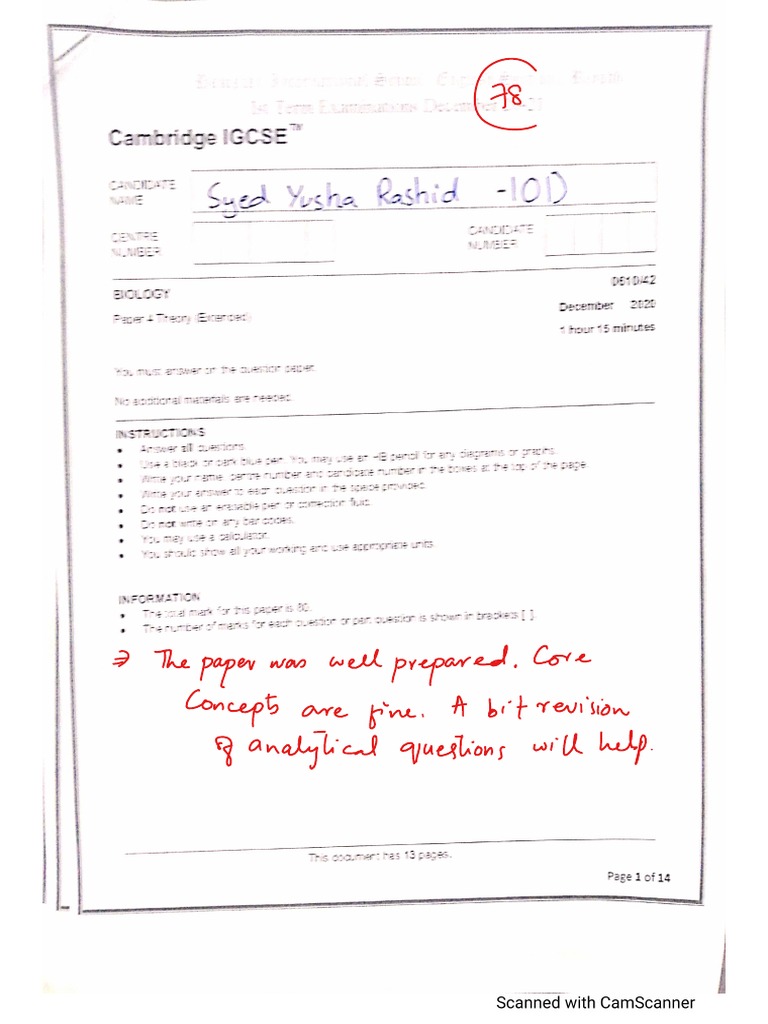 78
1st Term Examinations December
Cambridge IGCSE™
CANDIDATE NAME
Syed Yusha Rashid -10D
CENTRE NUMBER
CANDIDATE NUMBER
BIOLOGY
0610/42
Paper 4 Theory (Extended)
December 2020
1 hour 15 minutes
You must answer on the question paper.
No additional materials are needed.
INSTRUCTIONS
● Answer all questions.
● Use a black or dark blue pen. You may use an HB pencil for any diagrams or graphs.
● Write your name, centre number and candidate number in the boxes at the top of the page.
● Write your answer to each question in the space provided.
● Do not use an erasable pen or correction fluid.
● Do not write on any bar codes.
● You may use a calculator.
● You should show all your working and use appropriate units.
INFORMATION
● The total mark for this paper is 80.
● The number of marks for each question or part question is shown in brackets [ ].
⇒ The paper was well prepared. Core
Concepts are fine. A bit revision
of analytical questions will help.
This document has 13 pages.
Page 1 of 14
Scanned with CamScanner